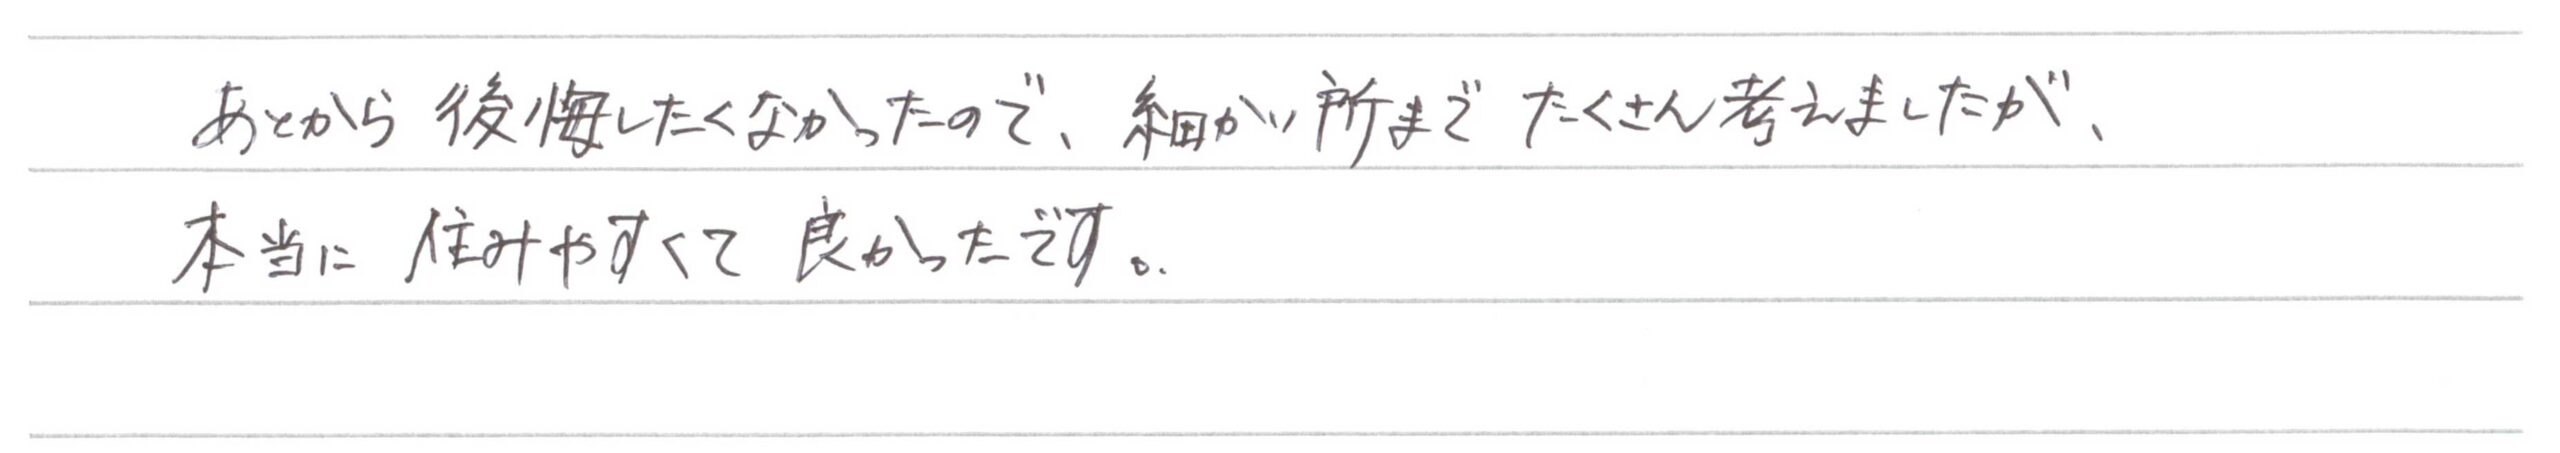 あとから後悔したくなかったので、細かい所までたくさん考えましたが、
本当に住みやすくて良かったです。